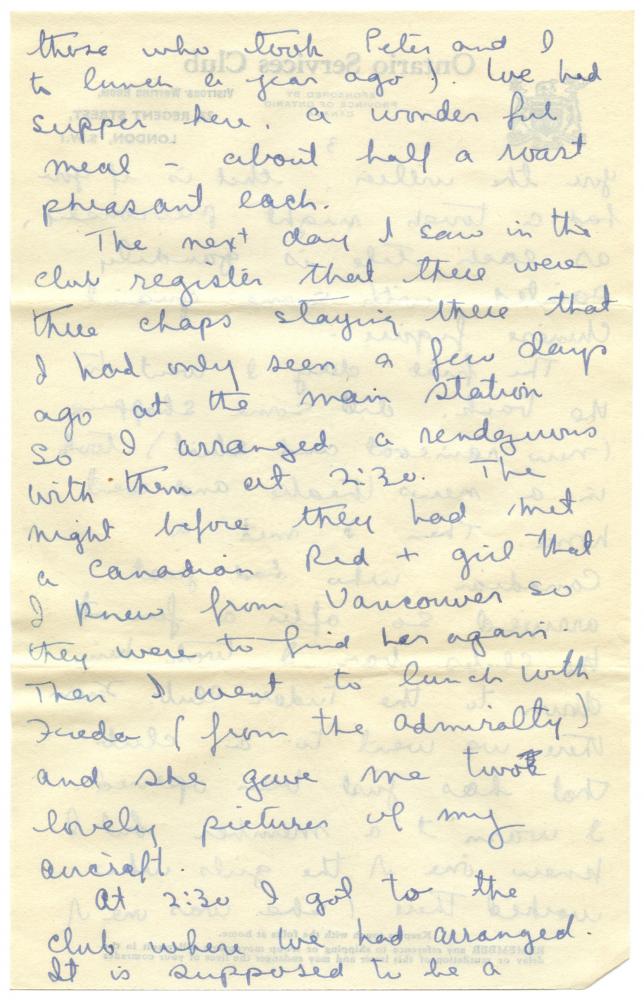 those who took Peter and I
to lunch a year ago). We had
supper here. a wonderful
meal - about half a roast
pheasant each.
The next day I saw in the
club register that there were
three chaps staying there that
I had only seen a few days
ago at the main station
so I arranged a rendezvous
with them at 2:30. The
night before they had met
a Canadian Red + girl that
I knew from Vancouver so
they were to find her again.
Then I went to lunch with
Freda (from the Admiralty)
and she gave me two
lovely pictures of my
aircraft.
At 2:30 I got to the
club where we had arranged.
It is supposed to be a